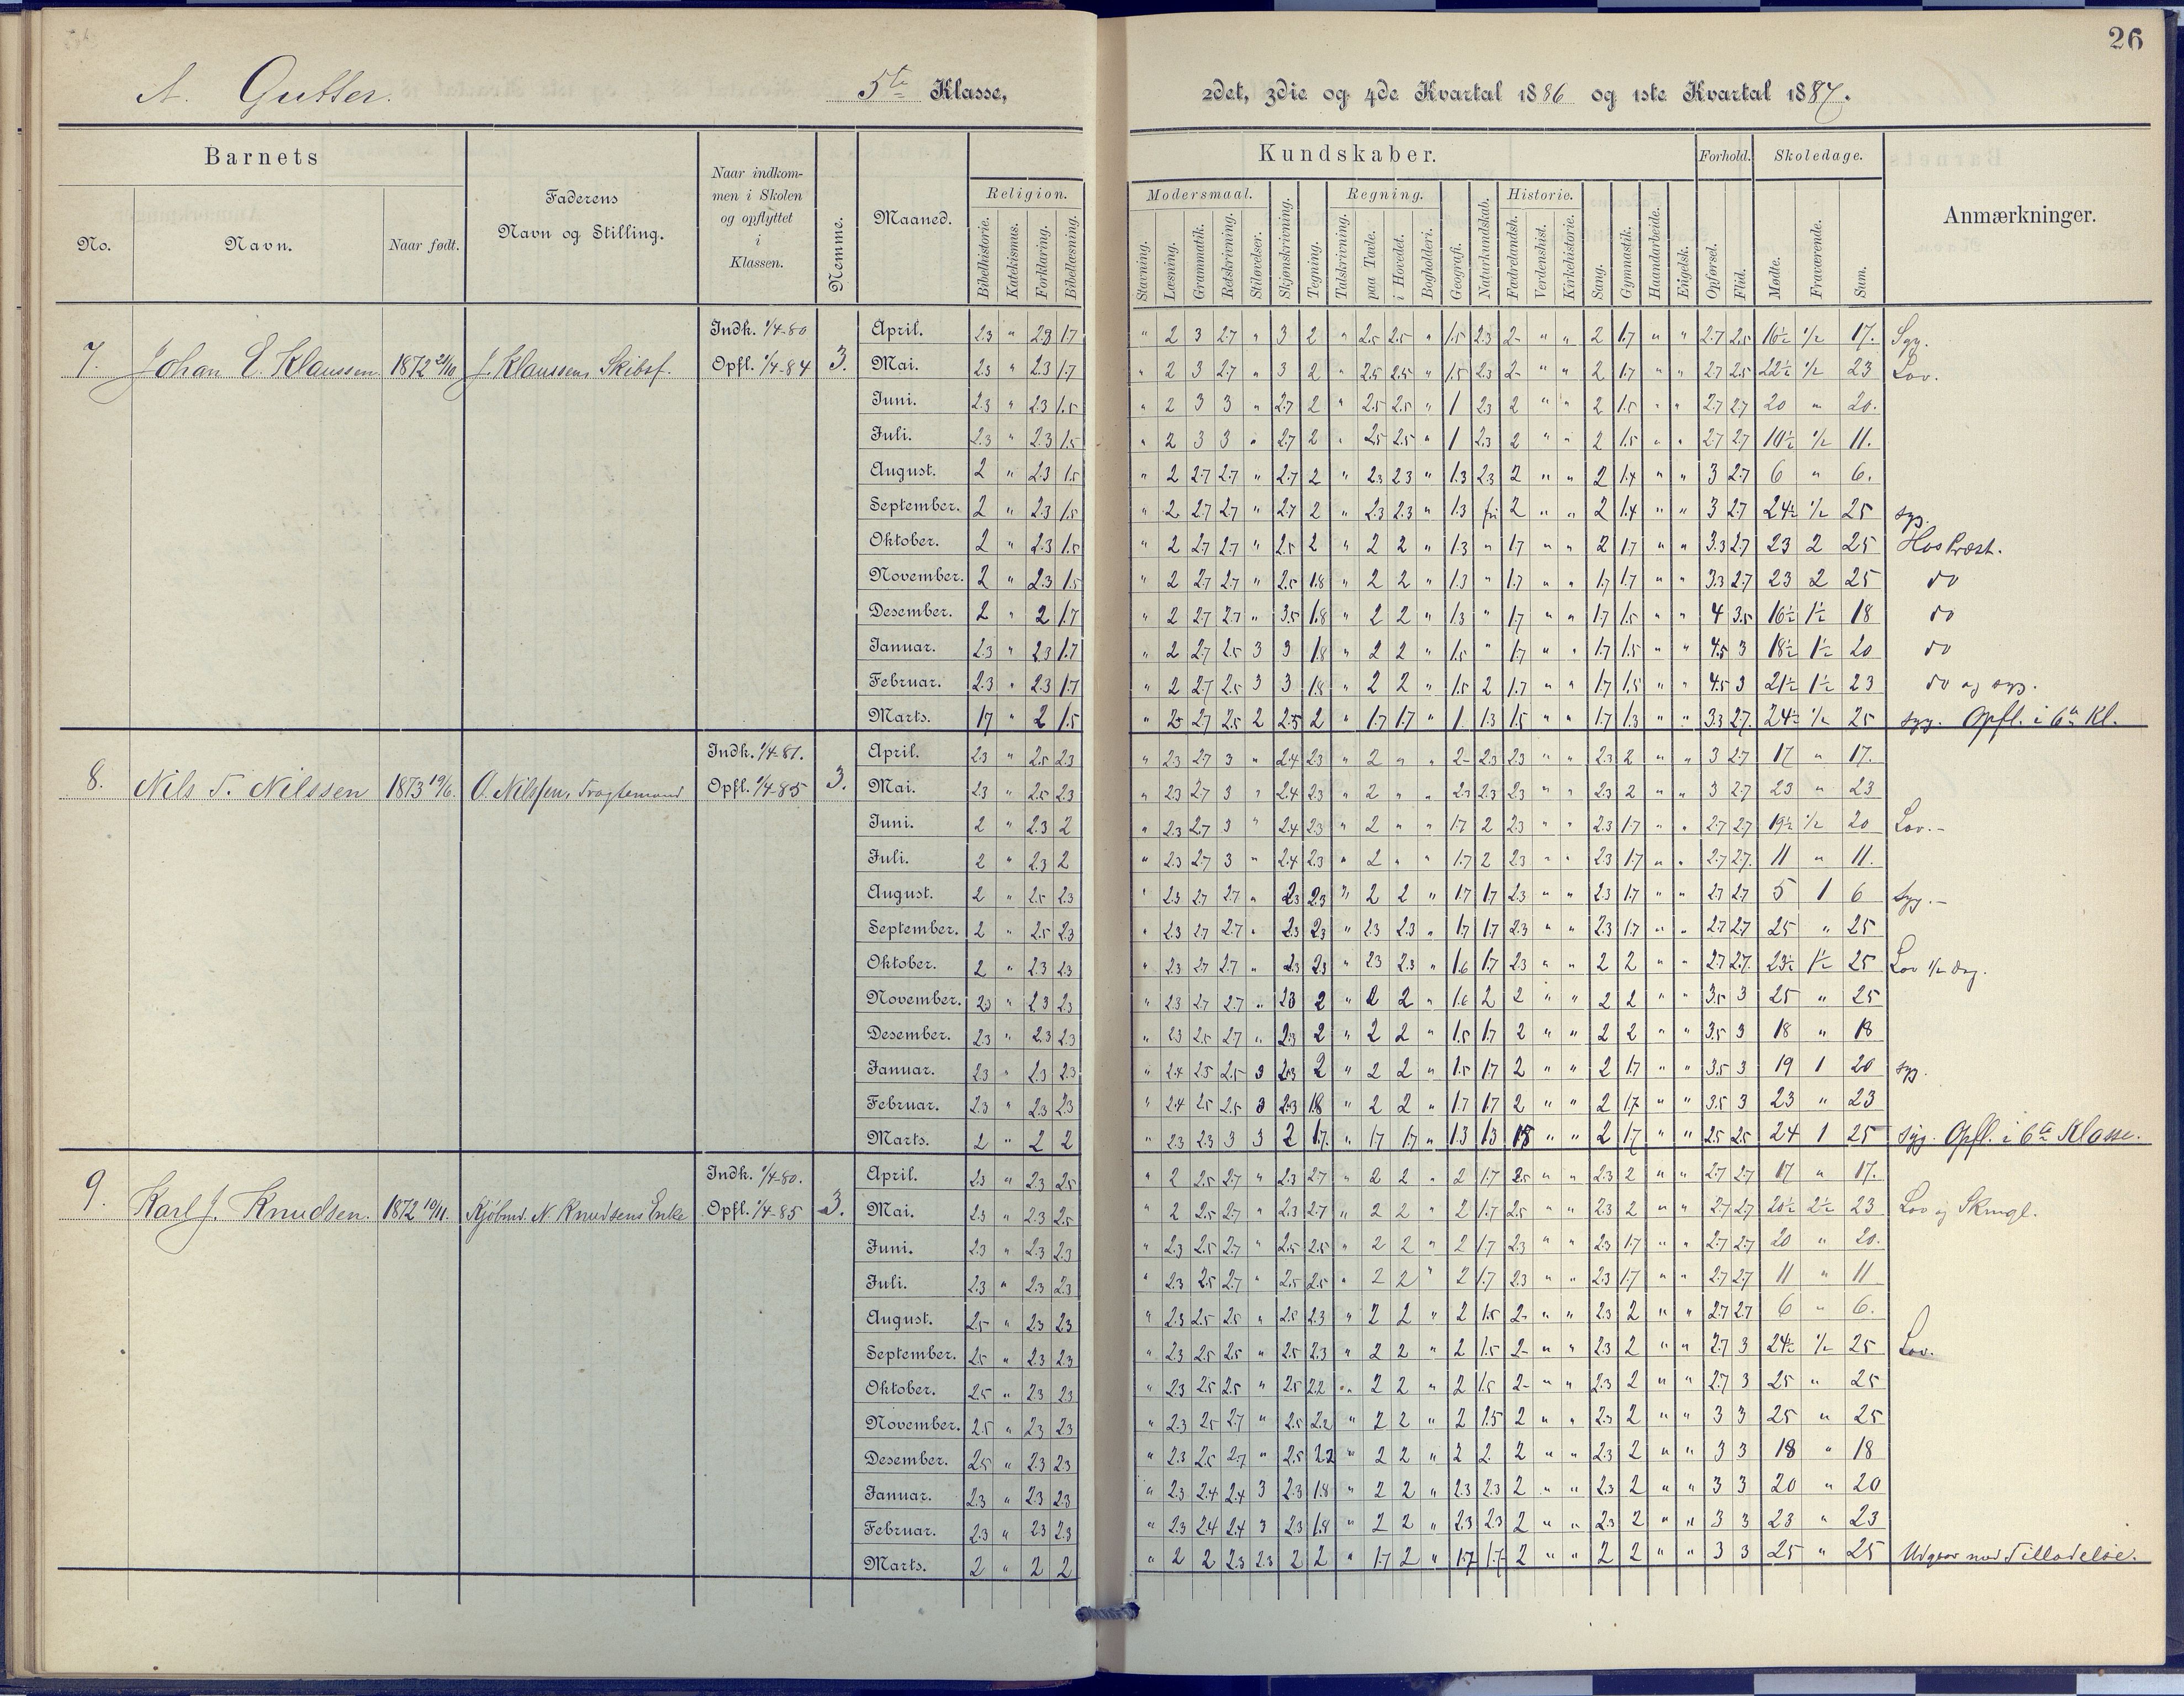 26
A. Gutter. 5te Klasse, 2det, 3die og 4de Kvartal 1886 og 1ste Kvartal 1887.
Barnets
No.
Navn.
Naar født.
Faderens
Navn og Stilling.
Naar indkom-
men i Skolen
og opflyttet
i
Klassen.
Nemme.
Maaned.
Kundskaber.
Religion.
Bibelhistorie. Katekismus. Forklaring. Bibellæsning.
Modersmaal.
Stavning. Læsning. Grammatik. Retskrivning. Stiløvelser.
Skjønskrivning. Tegning.
Regning.
Talskrivning. paa Tavle. i Hovedet. Bogholderi.
Geografi. Naturkundskab.
Historie.
Fædrelandsh. Verdenshist. Kirkehistorie.
Sang. Gymnastik. Haandarbeide. Engelsk.
Forhold.
Opførsel. Flid.
Skoledage.
Mødte. Fraværende. Sum.
Anmærkninger.
7. Johan E. Klaussen 1872 21/10 J. Klaussen, Skibsf. Indk. 1/4-80 Opfl. 1/4-84 3.
April. 2.3 " 2.3 1.7 " 2 3 2.7 " 3 2 " 2.5 2.5 " 1.5 2.3 2- " " 2 1.7 " " 2.7 2.5 16½ ½ 17. Syg.
Mai. 2.3 " 2.3 1.7 " 2 3 2.7 " 3 2 " 2.5 2.5 " 1.5 2.3 2- " " 2 1.7 " " 2.7 2.5 22½ ½ 23 Lov.
Juni. 2.3 " 2.3 1.5 " 2 3 3 " 2.7 2 " 2.5 2.5 " 1 2.3 2 " " 2 1.5 " " 2.7 2.7 20 " 20.
Juli. 2.3 " 2.3 1.5 " 2 3 3 " 2.7 2 " 2.5 2.5 " 1 2.3 2 " " 2 1.5 " " 2.7 2.7 10½ ½ 11.
August. 2 " 2.3 1.5 " 2 2.7 2.7 " 2.7 2 " 2.3 2.3 " 1.3 2.3 2 " " 2 1.4 " " 3 2.7 6 " 6.
September. 2 " 2.3 1.5 " 2 2.7 2.7 " 2.7 2 " 2.3 2.3 " 1.3 fri 2 " " 2 1.4 " " 3 2.7 24½ ½ 25 syg.
Oktober. 2 " 2.3 1.5 " 2 2.7 2.7 " 2.5 2 " 2 2 " 1.3 " 1.7 " " 2 1.7 " " 3.3 2.7 23 2 25 Hos Præst.
November. 2 " 2.3 1.5 " 2 2.7 2.7 " 2.5 1.8 " 2 2 " 1.3 " 1.7 " " 1.7 1.7 " " 3.3 2.7 23 2 25 do
Desember. 2 " 2 1.7 " 2 2.7 2.7 " 3.5 1.8 " 2 2 " 1.3 " 1.7 " " 1.7 1.5 " " 4 3.5 16½ 1½ 18 do
Januar. 2.3 " 2.3 1.7 " 2 2.7 2.5 3 3 1.8 " 2 2 " 1.5 " 1.7 " " 1.7 1.5 " " 4.5 3 18½ 1½ 20 do
Februar. 2.3 " 2.3 1.7 " 2 2.7 2.5 3 3 1.8 " 2 2 " 1.5 2 1.7 " " 1.7 1.5 " " 4.5 3 21½ 1½ 23 do og syg.
Marts. 1.7 " 2 1.5 " 2.7 2.5 2 2.5 2 " 1.7 1.7 " 1 1.3 1.5 " " 1.7 1.3 " " 3.3 2.7. 24½ ½ 25 syg. Opfl. i 6te Kl.
8. Nils T. Nilssen 1873 19/6. O. Nilssen, Fragtemand Indk. 1/4-81. Opfl. 1/4-85 3.
April. 2.3 " 2.5 2.3 " 2.3 2.7 3 " 2.4 2.3 " 2 " " 2- 2.3 2.3 " " 2.3 2 " " 3 2.7 17 " 17.
Mai. 2.3 " 2.5 2.3 " 2.3 2.7 3 " 2.4 2.3 " 2 " " 2.3 2.3 2.3 " " 2.3 2 " " 3 2.7 23 " 23
Juni. 2 " 2.3 2 " 2.3 2.7 3 " 2.4 2.3 " 2 " " 1.7 2 2.3 " " 2.3 1.7 " " 2.7 2.7 19½ ½ 20 Lov.-
Juli. 2 " 2.3 2 " 2.3 2.7 3 " 2.4 2.3 " 2 " " 1.7 2 2.3 " " 2.3 1.7 " " 2.7 2.7. 11 " 11.
August. 2 " 2.5 2.3 " 2.3 2.7 2.7 " 2.3 2.3 " 2 2 " 1.7 1.7 2.3 " " 2.3 1.7 " " 2.7 2.7 5 1 6 syg.-
September. 2 " 2.5 2.3 " 2.3 2.7 2.7 " 2.3 2.3 " 2.3 2.3 " 1.7 1.7 2.3 " " 2.3 1.7 " " 2.7 2.7 25 " 25
Oktober. 2 " 2.3 2.3 " 2.3 2.7 2.7 " 2.3 2.3 " 2.3 2.3 " 1.6 1.7 2.3 " " 2 2 " " 2.7 2.7. 23½ 1½ 25 Lov ½ Dag.
November. 2.3 " 2.3 2.3 " 2.3 2.7 2.7 " 2.3 2 " 2 2 " 1.6 2 2 " " 2 2 " " 3.5 3 25 " 25
Desember. 2.3 " 2.3 2.3 " 2.3 2.5 2.7 " 2.3 2 " 2 2 " 1.5 1.7 2 " " 2 2 " " 3.5 3 18 " 18
Januar. 2.3 " 2.3 2.3 " 2.4 2.5 2.5 3 2.3 2 " 2 2 " 1.5 1.7 2 " " 2 1.7 " " 3.5 3 19 1 20 syg.
Februar. 2.3 " 2.3 2.3 " 2.4 2.5 2.5 3 2.3 1.8 " 2 2 " 1.7 1.7 2 " " 2 1.7 " " 3.5 3 23 " 23
Marts. 2 " 2 2 " 2.3 2.3 3 3 2 1.7. " 1.7 1.7 " 1.3 1.3 1.8 " " 2 1.7 " " 2.5 2.5 24 1 25 syg. Opfl. i 6te Klasse.
9. Karl J. Knudsen. 1872 10/11. Kjøbmd. N Knudsens Enke Indk. 1/4-80. Opfl. 1/4-85 3.
April. 2.3 " 2.3 2.5 " 2 2.5 2.7 " 2.3 2.7 " 2 2 " 2 1.7 2.5 " " 2.3 2 " " 2.7 2.7 17 " 17.
Mai. 2.3 " 2.3 2.5 " 2 2.5 2.7 " 2.3 2.7 " 2 2 " 2 1.7 2.5 " " 2.3 2 " " 2.7 2.7 20½ 2½ 23 Lov og
Juni. 2.3 " 2.3 2.3 " 2.3 2.5 2.7 " 2.5 2.5 " 2 2 " 2 1.7 2.3 " " 2.3 1.7 " " 2.7 2.7 20 " 20.
Juli. 2.3 " 2.3 2.3 " 2.3 2.5 2.7 " 2.5 2.5 " 2 2 " 2 1.7 2.3 " " 2.3 1.7 " " 2.7 2.7 11 " 11
August. 2.5 " 2.3 2.3 " 2.3 2.5 2.5 " 2.5 2.3 " 2 2 " 2 1.5 2- " " 2.3 2 " " 2.7 2.7 6 " 6.
September. 2.5 " 2.3 2.3 " 2.3 2.5 2.5 " 2.5 2.3 " 2 2 " 2 1.5 2- " " 2.3 2 " " 2.7 3 24½ ½ 25 Lov.
Oktober. 2.5 " 2.3 2.3 " 2.3 2.5 2.5 " 2.5 2.2 " 2 2 " 2 1.5 2- " " 2.3 2 " " 2.7 3 25 " 25
November. 2.5 " 2.3 2.3 " 2.3 2.5 2.7 " 2.5 2.2 " 2 2 " 2 1.5 2 " " 2.3 2 " " 3 3 25 " 25
Desember. 2.5 " 2.3 2.3 " 2.3 2.5 2.7 " 2.5 2.2 " 2 2 " 2 2 2 " " 2.3 2 " " 3 3 18 " 18
Januar. 2.3 " 2.3 2.3 " 2.3 2.4 2.4 3 2.3 1.8 " 2 2 " 2.3 2.3 2 " " 2.3 2 " " 3 3 20 " 20
Februar. 2.3 " 2.3 2.3 " 2.3 2.4 2.4 3 2.3 1.8 " 2 2 " 2.3 2.3 2 " " 2.3 2 " " 3 3 23 " 23
Marts. 2 " 2 2 " 2 2 2.3 2.3 2 2 " 1.7 2 " 1.7 1.7 2 " " 2 2 " " 3 3 25 " 25 Udgaar med Tilladelse.